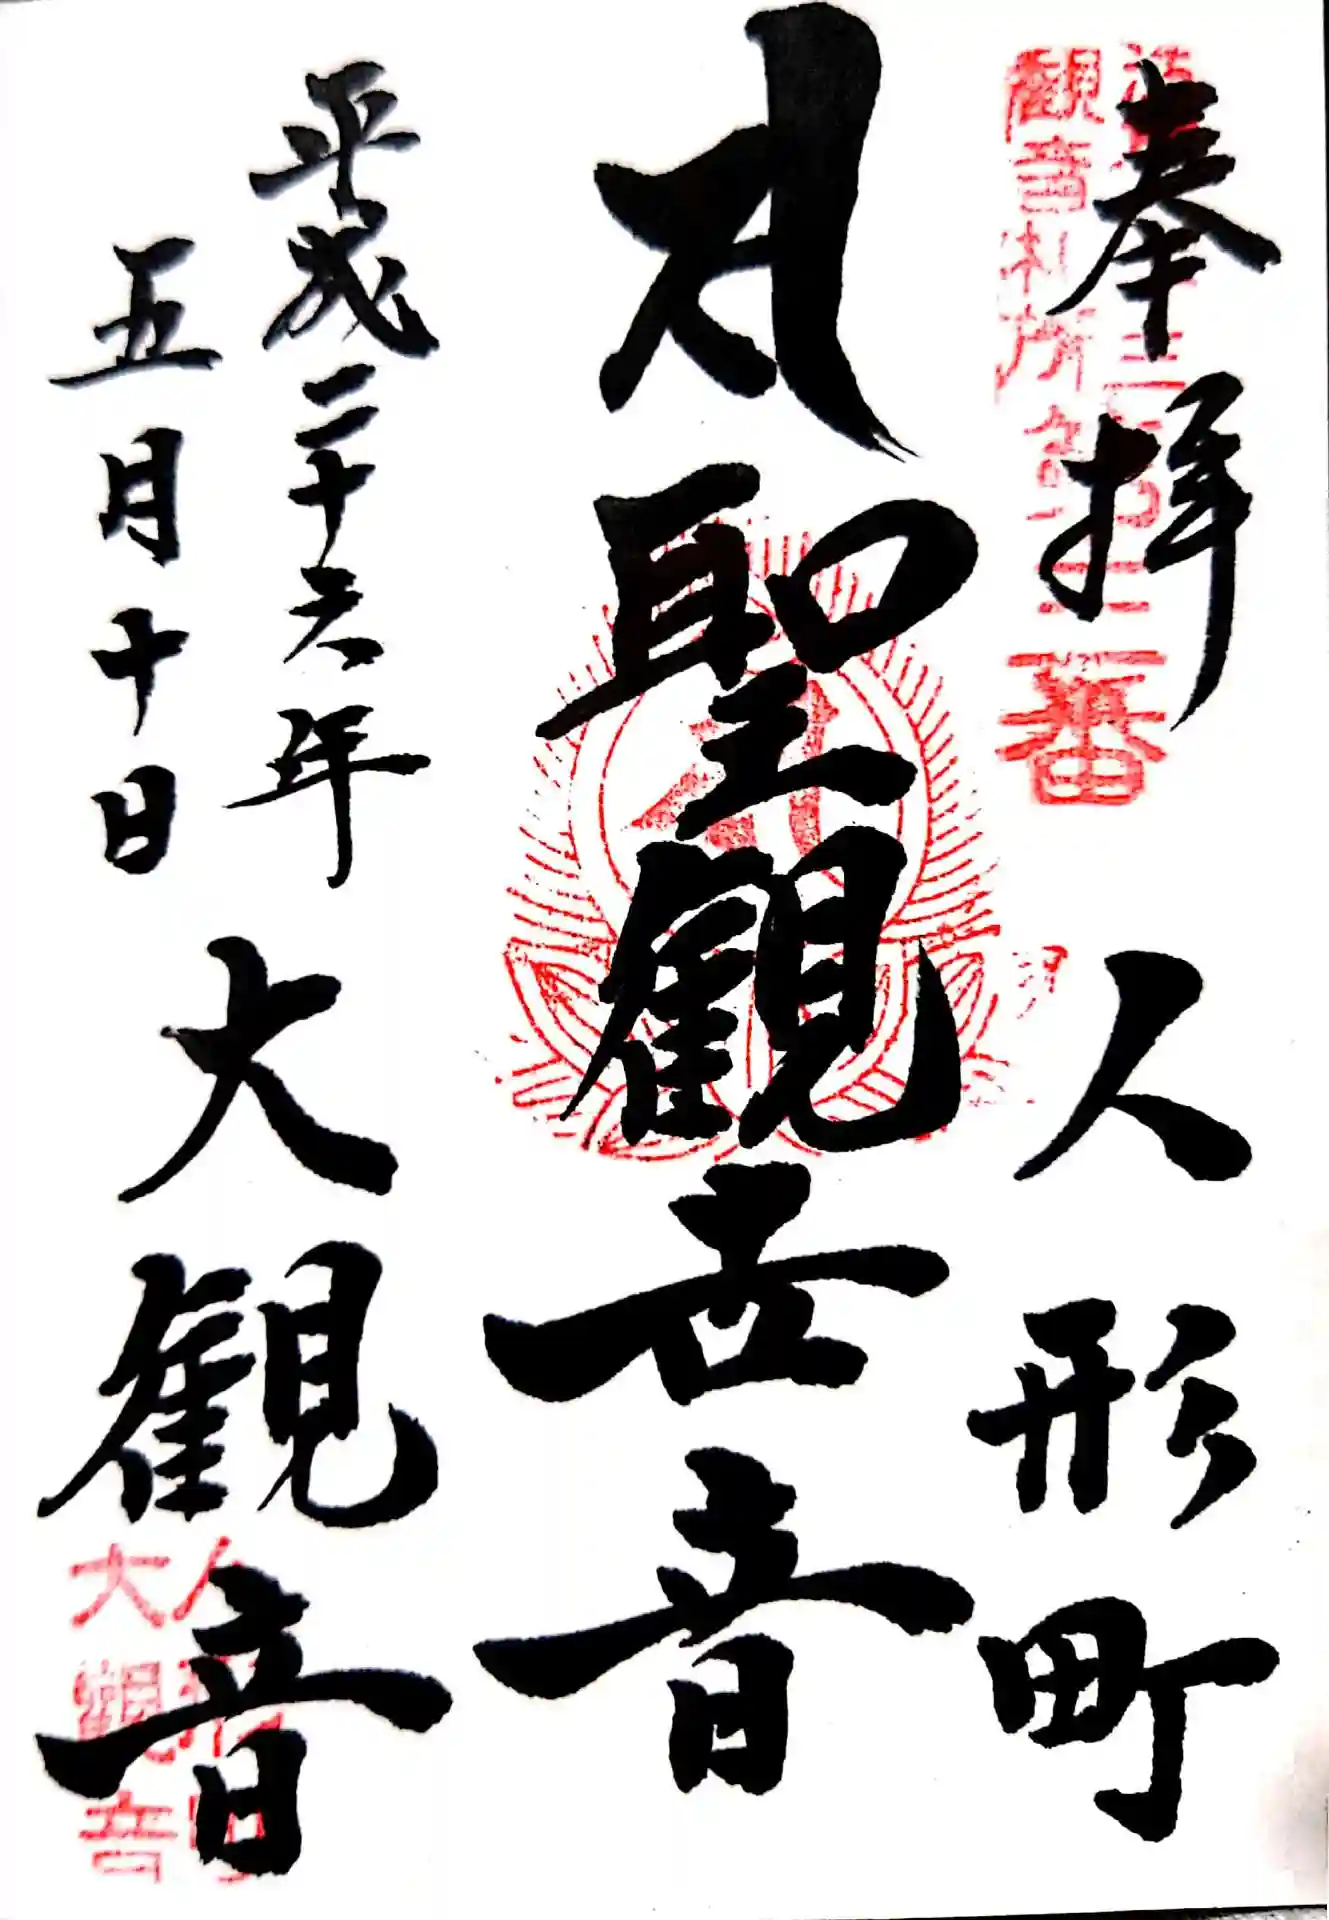 奉拝
人形町
聖観世音
平成二十六年
五月十日
大観音
観音札所
三番
人形町
大観音